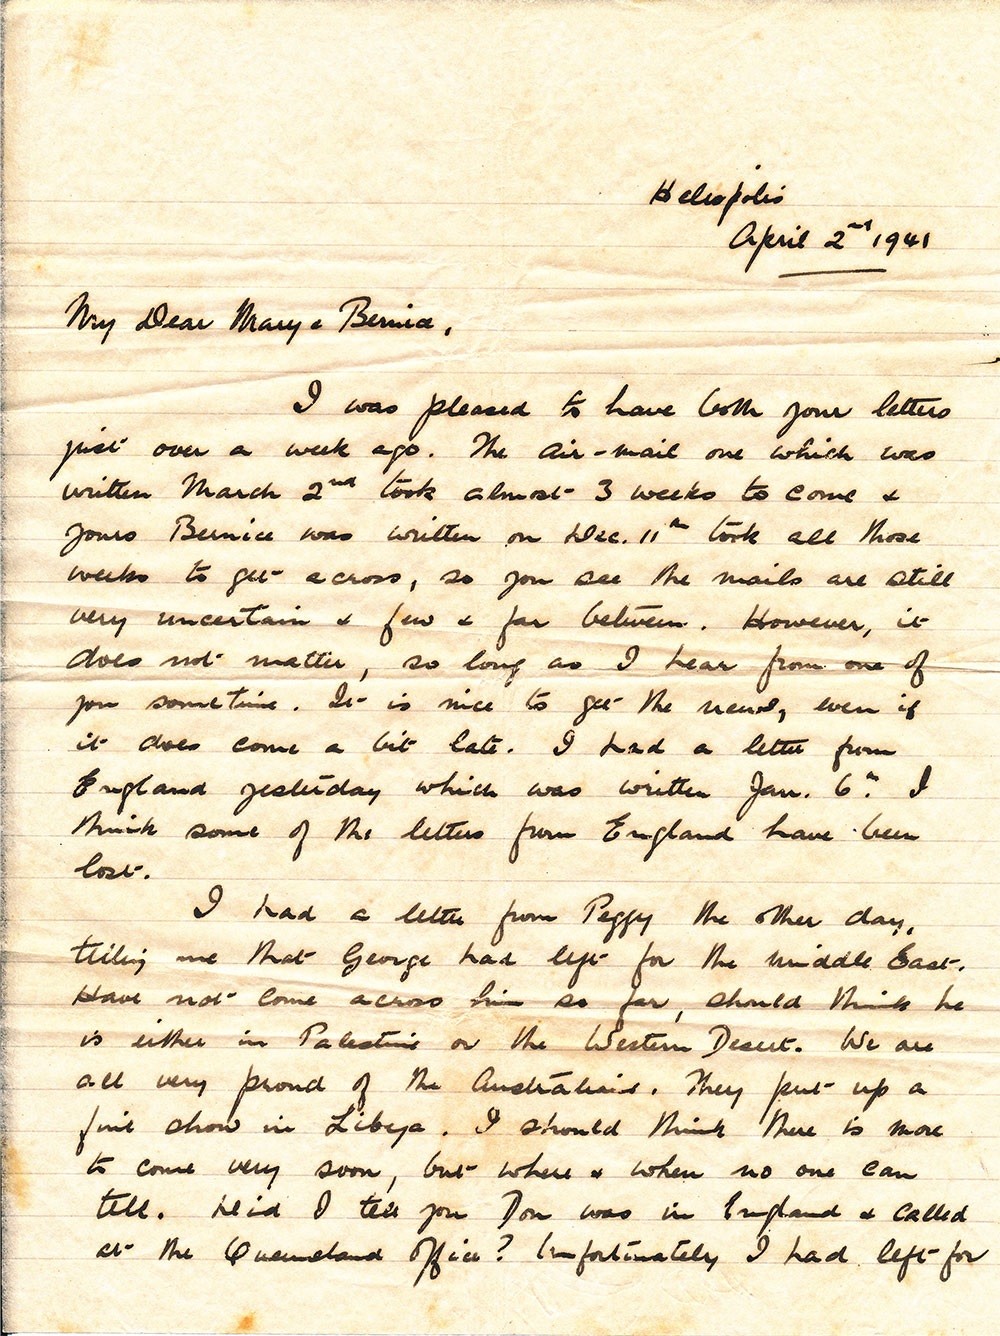 Heliopolis
April 2nd 1941
My Dear Mary & Bernice,
I was pleased to have both your letters
just over a week ago. The air-mail one which was
written March 2nd took almost 3 weeks to come &
yours Bernice was written on Dec. 11th took all those
weeks to get across, so you see the mails are still
very uncertain & few & far between. However, it
does not matter, so long as I hear from one of
you sometime. It is nice to get the news, even if
it does come a bit late. I had a letter from
England yesterday which was written Jan. 6th. I
think some of the letters from England have been
lost.
I had a letter from Peggy the other day,
telling me that George had left for the Middle East.
Have not come across him so far, should think he
is either in Palestine or the Western Desert. We are
all very proud of the Australians. They put up a
fine show in Libya. I should think there is more
to come very soon, but where & when no one can
tell. Did I tell you Don was in England & called
at the Queensland Office? Unfortunately I had left for